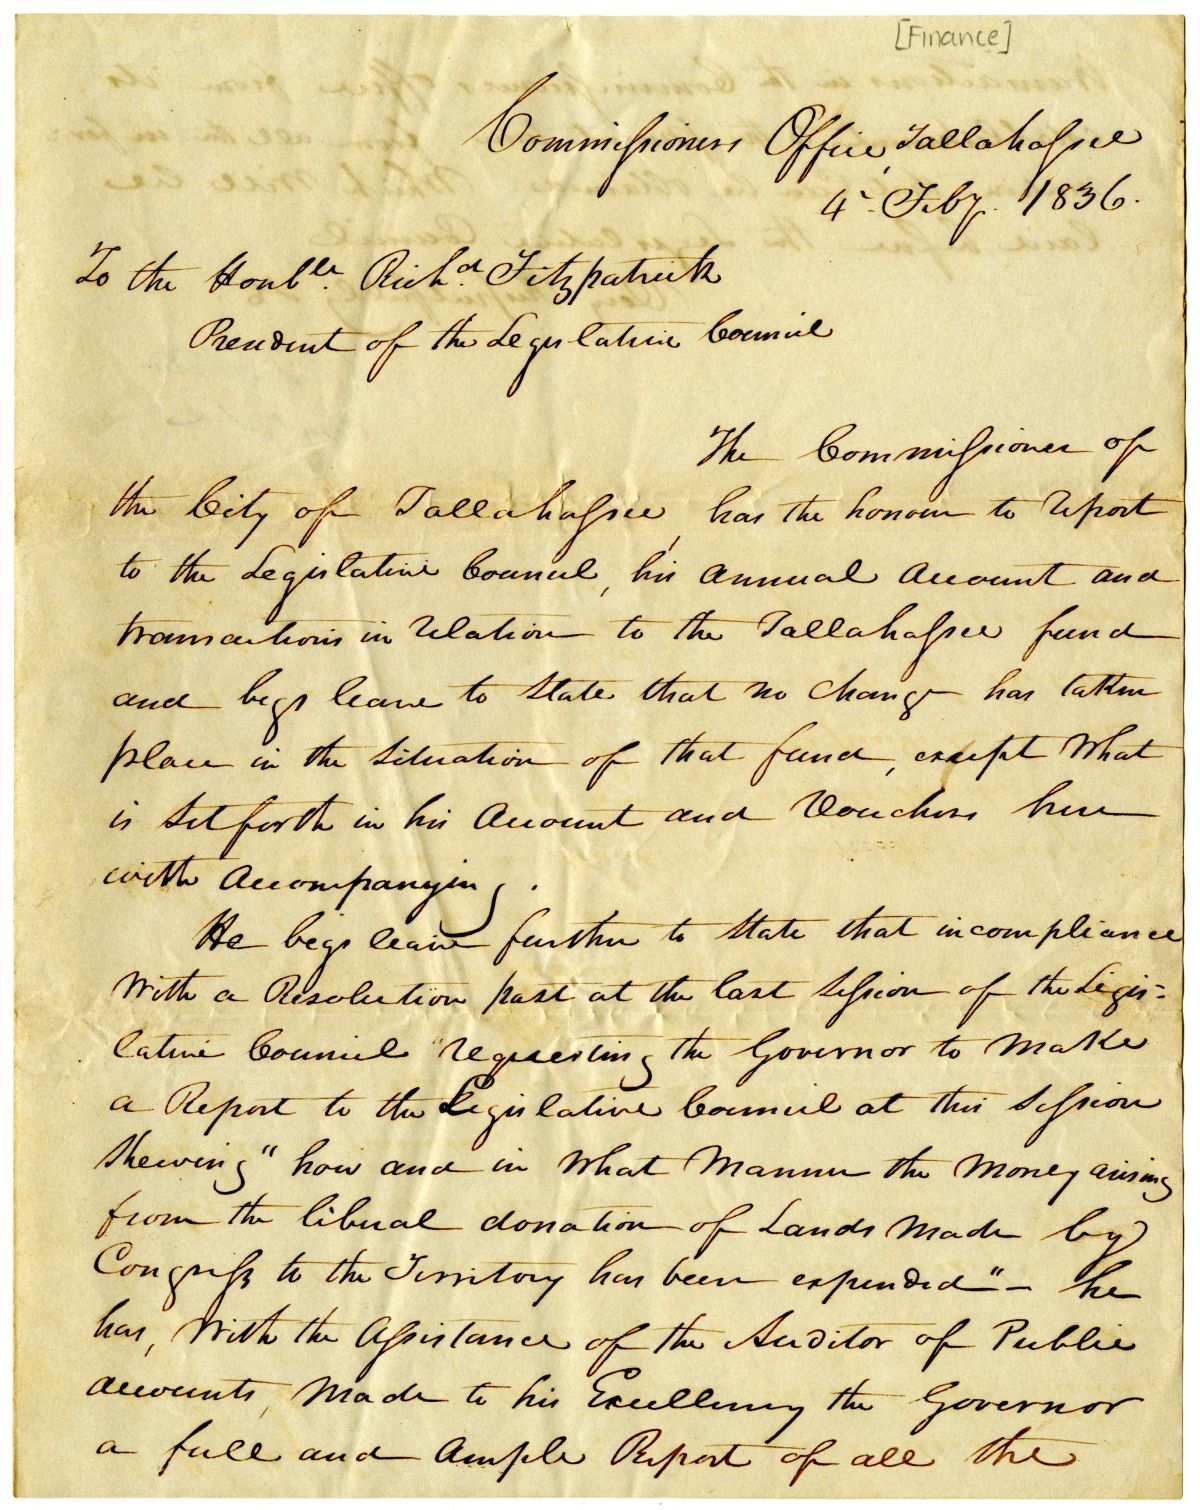 [Finance]
Commissioners Office, Tallahassee
4 Feby. 1836.
To the Honble. Richd. Fitzpatrick
President of the Legislative Council
The Commissioner of
the City of Tallahassee, has the honour to report
to the Legislative Council, his annual account and
transactions in relation to the Tallahassee fund
and begs leave to state that no change has taken
place in the situation of that fund, except what
is set forth in his account and vouchers here
with accompanying.
He begs leave further to state that in compliance
with a Resolution past at the last session of the Legis=
lative Council "requesting the Governor to make
a Report to the Legislative Council at this session
shewing" how and in what manner the money arising
from the liberal donation of Lands made by
Congress to the Territory has been expended" - he
has, with the assistance of the Auditor of Public
accounts, made to his Excellency the Governor
a full and ample Report of all the